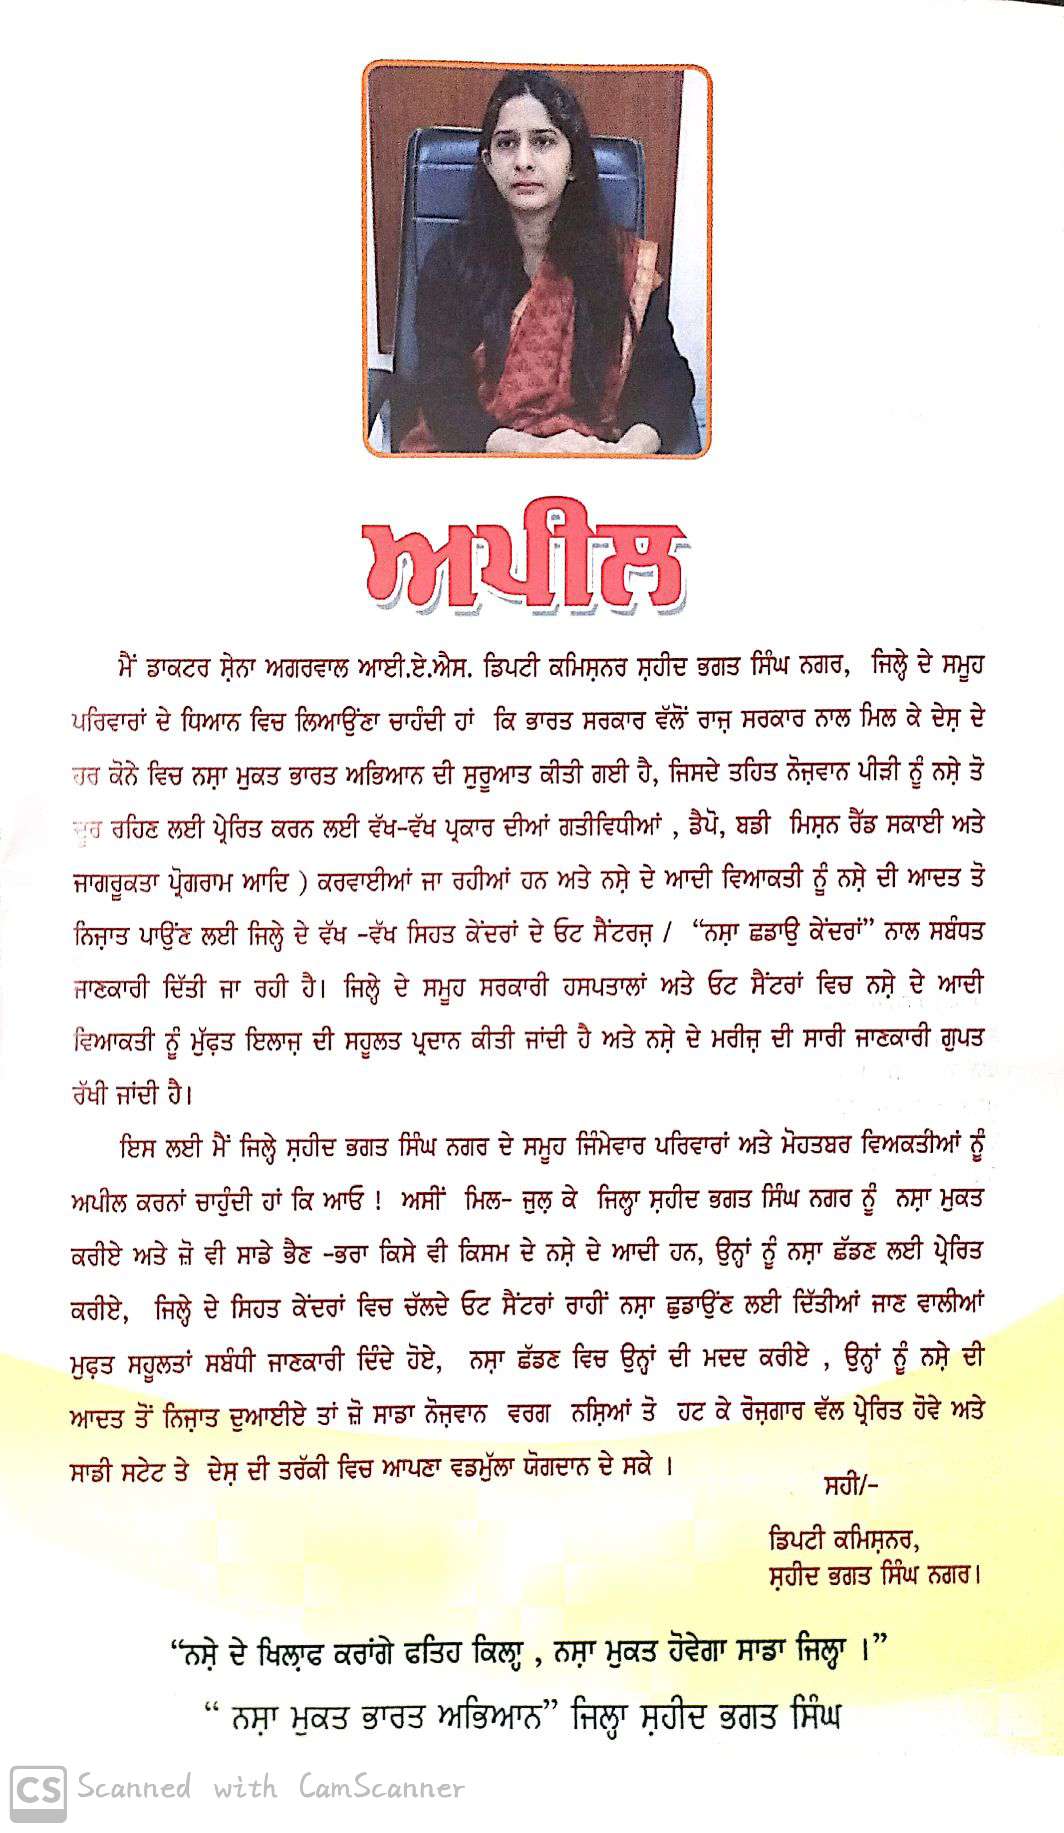 ਅਪੀਲ
ਮੈਂ ਡਾਕਟਰ ਸ਼ੇਨਾ ਅਗਰਵਾਲ ਆਈ.ਏ.ਐਸ. ਡਿਪਟੀ ਕਮਿਸ਼ਨਰ ਸ਼ਹੀਦ ਭਗਤ ਸਿੰਘ ਨਗਰ, ਜਿਲ੍ਹੇ ਦੇ ਸਮੂਹ
ਪਰਿਵਾਰਾਂ ਦੇ ਧਿਆਨ ਵਿਚ ਲਿਆਉਂਣਾ ਚਾਹੰਦੀ ਹਾਂ ਕਿ ਭਾਰਤ ਸਰਕਾਰ ਵੱਲੋਂ ਰਾਜ਼ ਸਰਕਾਰ ਨਾਲ ਮਿਲ ਕੇ ਦੇਸ਼ ਦੇ
ਹਰ ਕੋਨੇ ਵਿਚ ਨਸ਼ਾ ਮੁਕਤ ਭਾਰਤ ਅਭਿਆਨ ਦੀ ਸ਼ੁਰੂਆਤ ਕੀਤੀ ਗਈ ਹੈ, ਜਿਸਦੇ ਤਹਿਤ ਨੋਜ਼ਵਾਨ ਪੀੜੀ ਨੂੰ ਨਸ਼ੇ ਤੋ
ਦੂਰ ਰਹਿਣ ਲਈ ਪ੍ਰੇਰਿਤ ਕਰਨ ਲਈ ਵੱਖ-ਵੱਖ ਪ੍ਰਕਾਰ ਦੀਆਂ ਗਤੀਵਿਧੀਆਂ , ਡੈਪੋ, ਬਡੀ ਮਿਸ਼ਨ ਰੈੱਡ ਸਕਾਈ ਅਤੇ
ਜਾਗਰੂਕਤਾ ਪ੍ਰੋਗਰਾਮ ਆਦਿ ) ਕਰਵਾਈਆਂ ਜਾ ਰਹੀਆਂ ਹਨ ਅਤੇ ਨਸ਼ੇ ਦੇ ਆਦੀ ਵਿਆਕਤੀ ਨੂੰ ਨਸ਼ੇ ਦੀ ਆਦਤ ਤੋ
ਨਿਜ਼ਾਤ ਪਾਉਂਣ ਲਈ ਜਿਲ੍ਹੇ ਦੇ ਵੱਖ -ਵੱਖ ਸਿਹਤ ਕੇਂਦਰਾਂ ਦੇ ਓਟ ਸੈਂਟਰਜ਼ / “ਨਸ਼ਾ ਛਡਾਉ ਕੇਂਦਰਾਂ” ਨਾਲ ਸਬੰਧਤ
ਜਾਣਕਾਰੀ ਦਿੱਤੀ ਜਾ ਰਹੀ ਹੈ। ਜਿਲ੍ਹੇ ਦੇ ਸਮੂਹ ਸਰਕਾਰੀ ਹਸਪਤਾਲਾਂ ਅਤੇ ਓਟ ਸੈਂਟਰਾਂ ਵਿਚ ਨਸ਼ੇ ਦੇ ਆਦੀ
ਵਿਆਕਤੀ ਨੂੰ ਮੁੱਫ਼ਤ ਇਲਾਜ਼ ਦੀ ਸਹੂਲਤ ਪ੍ਰਦਾਨ ਕੀਤੀ ਜਾਂਦੀ ਹੈ ਅਤੇ ਨਸ਼ੇ ਦੇ ਮਰੀਜ਼ ਦੀ ਸਾਰੀ ਜਾਣਕਾਰੀ ਗੁਪਤ
ਰੱਖੀ ਜਾਂਦੀ ਹੈ।
ਇਸ ਲਈ ਮੈਂ ਜਿਲ੍ਹੇ ਸ਼ਹੀਦ ਭਗਤ ਸਿੰਘ ਨਗਰ ਦੇ ਸਮੂਹ ਜਿੰਮੇਵਾਰ ਪਰਿਵਾਰਾਂ ਅਤੇ ਮੋਹਤਬਰ ਵਿਅਕਤੀਆਂ ਨੂੰ
ਅਪੀਲ ਕਰਨਾਂ ਚਾਹੁੰਦੀ ਹਾਂ ਕਿ ਆਓ ! ਅਸੀਂ ਮਿਲ- ਜੁਲ਼ ਕੇ ਜਿਲ੍ਹਾ ਸ਼ਹੀਦ ਭਗਤ ਸਿੰਘ ਨਗਰ ਨੂੰ ਨਸ਼ਾ ਮੁਕਤ
ਕਰੀਏ ਅਤੇ ਜ਼ੋ ਵੀ ਸਾਡੇ ਭੈਣ -ਭਰਾ ਕਿਸੇ ਵੀ ਕਿਸਮ ਦੇ ਨਸ਼ੇ ਦੇ ਆਦੀ ਹਨ, ਉਨ੍ਹਾਂ ਨੂੰ ਨਸ਼ਾ ਛੱਡਣ ਲਈ ਪ੍ਰੇਰਿਤ
ਕਰੀਏ, ਜਿਲ੍ਹੇ ਦੇ ਸਿਹਤ ਕੇਂਦਰਾਂ ਵਿਚ ਚੱਲਦੇ ਓਟ ਸੈਂਟਰਾਂ ਰਾਹੀਂ ਨਸ਼ਾ ਛੁਡਾਉਂਣ ਲਈ ਦਿੱਤੀਆਂ ਜਾਣ ਵਾਲੀਆਂ
ਮੁਫ਼ਤ ਸਹੂਲਤਾਂ ਸਬੰਧੀ ਜਾਣਕਾਰੀ ਦਿੰਦੇ ਹੋਏ, ਨਸ਼ਾ ਛੱਡਣ ਵਿਚ ਉਨ੍ਹਾਂ ਦੀ ਮਦਦ ਕਰੀਏ , ਉਨ੍ਹਾਂ ਨੂੰ ਨਸ਼ੇ ਦੀ
ਆਦਤ ਤੋਂ ਨਿਜ਼ਾਤ ਦੁਆਈਏ ਤਾਂ ਜ਼ੋ ਸਾਡਾ ਨੋਜ਼ਵਾਨ ਵਰਗ ਨਸ਼ਿਆਂ ਤੋ ਹਟ ਕੇ ਰੋਜ਼ਗਾਰ ਵੱਲ ਪ੍ਰੇਰਿਤ ਹੋਵੇ ਅਤੇ
ਸਾਡੀ ਸਟੇਟ ਤੇ ਦੇਸ਼ ਦੀ ਤਰੱਕੀ ਵਿਚ ਆਪਣਾ ਵਡਮੁੱਲਾ ਯੋਗਦਾਨ ਦੇ ਸਕੇ ।
ਸਹੀ/-
ਡਿਪਟੀ ਕਮਿਸ਼ਨਰ,
ਸ਼ਹੀਦ ਭਗਤ ਸਿੰਘ ਨਗਰ।
“ਨਸ਼ੇ ਦੇ ਖਿਲਾਫ਼ ਕਰਾਂਗੇ ਫਤਿਹ ਕਿਲ੍ਹਾ , ਨਸ਼ਾ ਮੁਕਤ ਹੋਵੇਗਾ ਸਾਡਾ ਜਿਲ੍ਹਾ ।”
“ ਨਸ਼ਾ ਮੁਕਤ ਭਾਰਤ ਅਭਿਆਨ” ਜਿਲ੍ਹਾ ਸ਼ਹੀਦ ਭਗਤ ਸਿੰਘ
CS Scanned with CamScanner